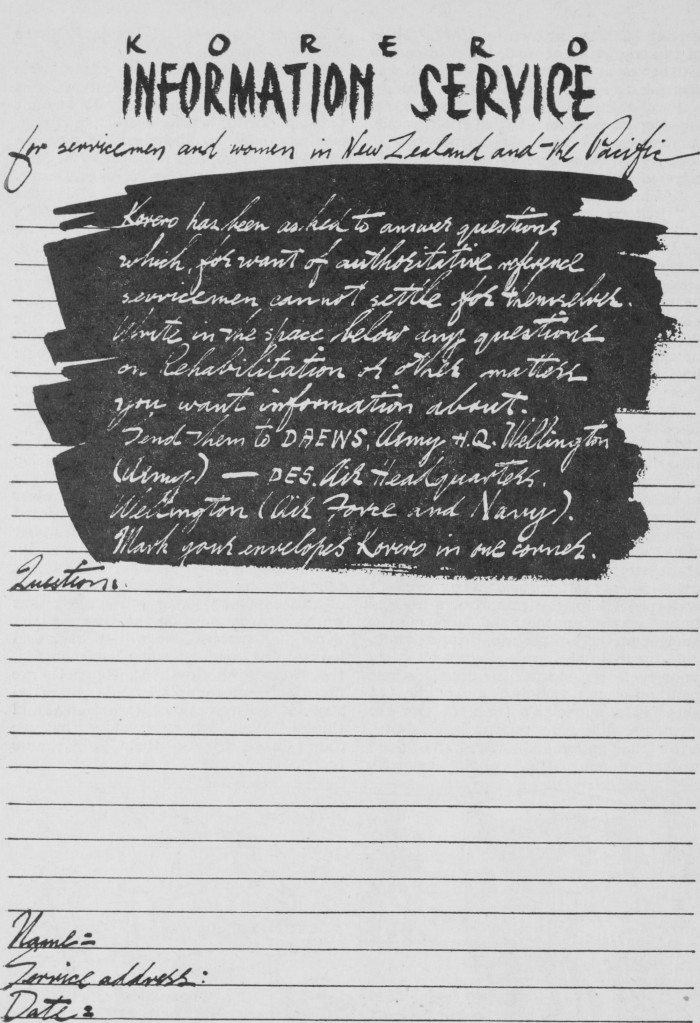 KORERO
INFORMATION SERVICE
for servicemen and women in New Zealand and the Pacific
Korero has been asked to answer questions
which, for want of authoritative reference
servicemen cannot settle for themselves.
Write in the space below any questions
on Rehabilitation or other matters
you want information about.
Send them to DAEWS, Army H.Q. Wellington
(Army) — DES. Air Headquarters.
Wellington (Air Force and Navy).
Mark your envelopes Korero in one corner.
Question:
Name:
Service address:
Date: